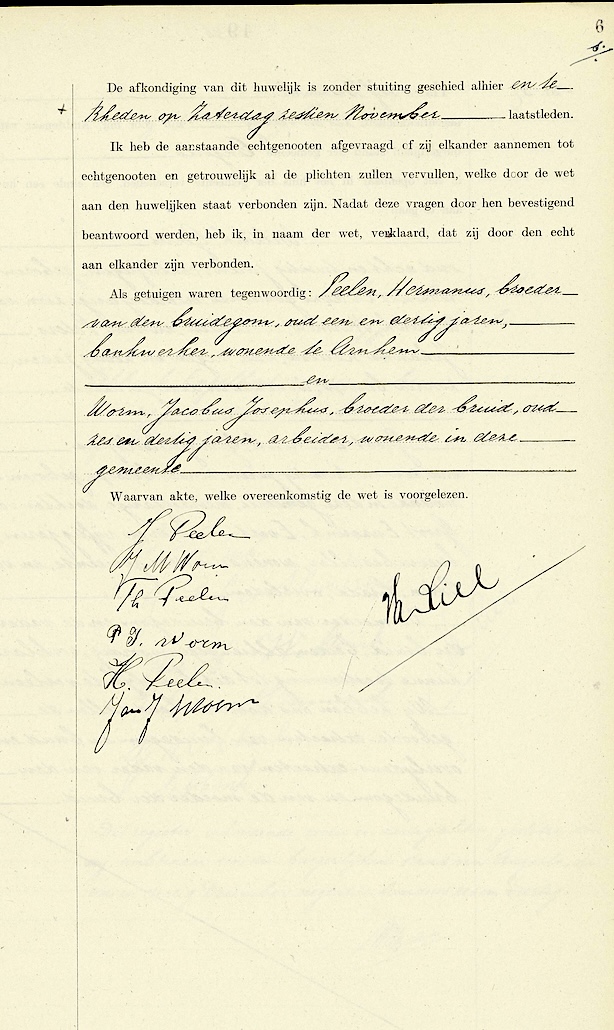 6
De afkondiging van dit huwelijk is zonder stuiting geschied alhier en te
Rheden op Zaterdag zestien November laatstleden.
Ik heb de aanstaande echtgenooten afgevraagd of zij elkander aannemen tot
echtgenooten en getrouwelijk al de plichten zullen vervullen, welke door de wet
aan den huwelijken staat verbonden zijn. Nadat deze vragen door hen bevestigend
beantwoord werden, heb ik, in naam der wet, verklaard, dat zij door den echt
aan elkander zijn verbonden.
Als getuigen waren tegenwoordig: Peelen, Hermanus, broeder
van den bruidegom, oud een en dertig jaren,
bankwerker, wonende te Arnhem
en
Worm, Jacobus Josephus, broeder der bruid, oud
zes en dertig jaren, arbeider, wonende in deze
gemeente
Waarvan akte, welke overeenkomstig de wet is voorgelezen.
J Peelen
J M Worm
Th Peelen
P J. Worm
H. Peelen.
J Worm